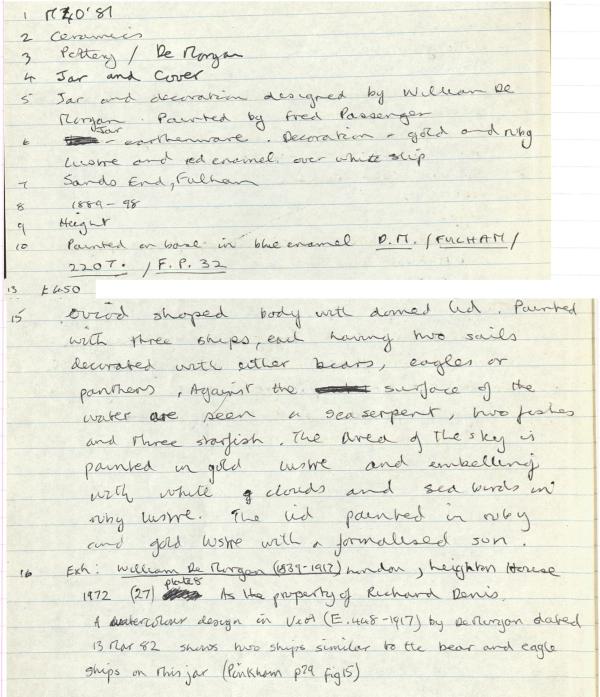 1 M40'81
2 Ceramics
3 Pottery / De Morgan
4 Jar and Cover
5 Jar and decoration designed by William De
Morgan. Painted by Fred Passenger
6 Jar - earthenware. Decoration - gold and ruby
lustre and red enamel over white slip
7 Sands End, Fulham
8 1889-98
9 Height
10 Painted on base in blue enamel D.M. / FULHAM /
2207. / F.P. 32
13 £450
15 Ovoid shaped body with domed lid. Painted
with three ships, each having two sails
decorated with either bears, eagles or
panthers, Against the surface of the
water are seen a sea serpent, two fishes
and three starfish. The area of the sky is
painted in gold lustre and embelling
with white clouds and sea birds in
ruby lustre. The lid painted in ruby
and gold lustre with a formalised sun.
16 Exh: William De Morgan (1839-1917) London, Leighton House
1972 (27) plate 8 As the property of Richard Denis.
A watercolour design in V&A (E.448-1917) by De Morgan dated
13 Mar 82 shows two ships similar to the bear and eagle
ships on this jar (Pinkham p79 fig 15)